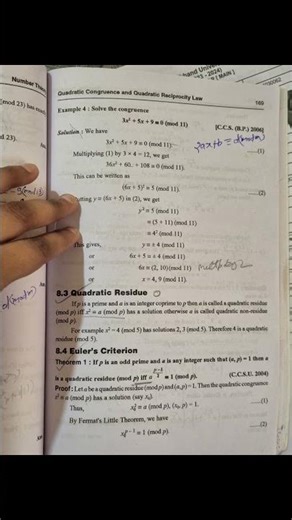 Number Theory
hand Univer
(MAIN)
Quadratic Congruence and Quadratic Reciprocity Law
169
(mod 23) has
d 23).
Example 4 : Solve the congruence
3x² + 5x + 9 ≡ 0 (mod 11)
[C.C.S. (B.P.) 2004]
Solution : We have
3x² + 5x + 9 ≡ 0 (mod 11)
...(1)
Multiplying (1) by 3 × 4 = 12, we get
36x² + 60 + 108 ≡ 0 (mod 11).
This can be written as
(6x + 5)² ≡ 5 (mod 11).
...(2)
utting y = (6x + 5) in (2), we get
y² ≡ 5 (mod 11)
≡ (5 + 11) (mod 11)
≡ 4² (mod 11)
This gives,
y ≡ ± 4 (mod 11)
or 6x + 5 ≡ ± 4 (mod 11)
or 6x ≡ (2, 10) (mod 11)
or x ≡ 4, 9 (mod 11).
8.3 Quadratic Residue
If p is a prime and a is an integer coprime to p then a is called a quadratic residue
(mod p) iff x² ≡ a (mod p) has a solution otherwise a is called quadratic non-residue
(mod p).
For example x² = 4 (mod 5) has solutions 2, 3 (mod 5). Therefore 4 is a quadratic
residue (mod 5).
8.4 Euler's Criterion
Theorem 1 : If p is an odd prime and a is any integer such that (a, p) = 1 then a
is a quadratic residue (mod p) iff a^(p-1)/2 ≡ 1 (mod p).
(C.C.S.U. 2004)
Proof : Let a be a quadratic residue (mod p) and (a, p) = 1. Then the quadratic congruence
x² ≡ a (mod p) has a solution (say x₀).
...(1)
Thus, x₀² ≡ a (mod p), (x₀, p) = 1.
By Fermat's Little Theorem, we have
...(2)
x₀^p-1 ≡ 1 (mod p).